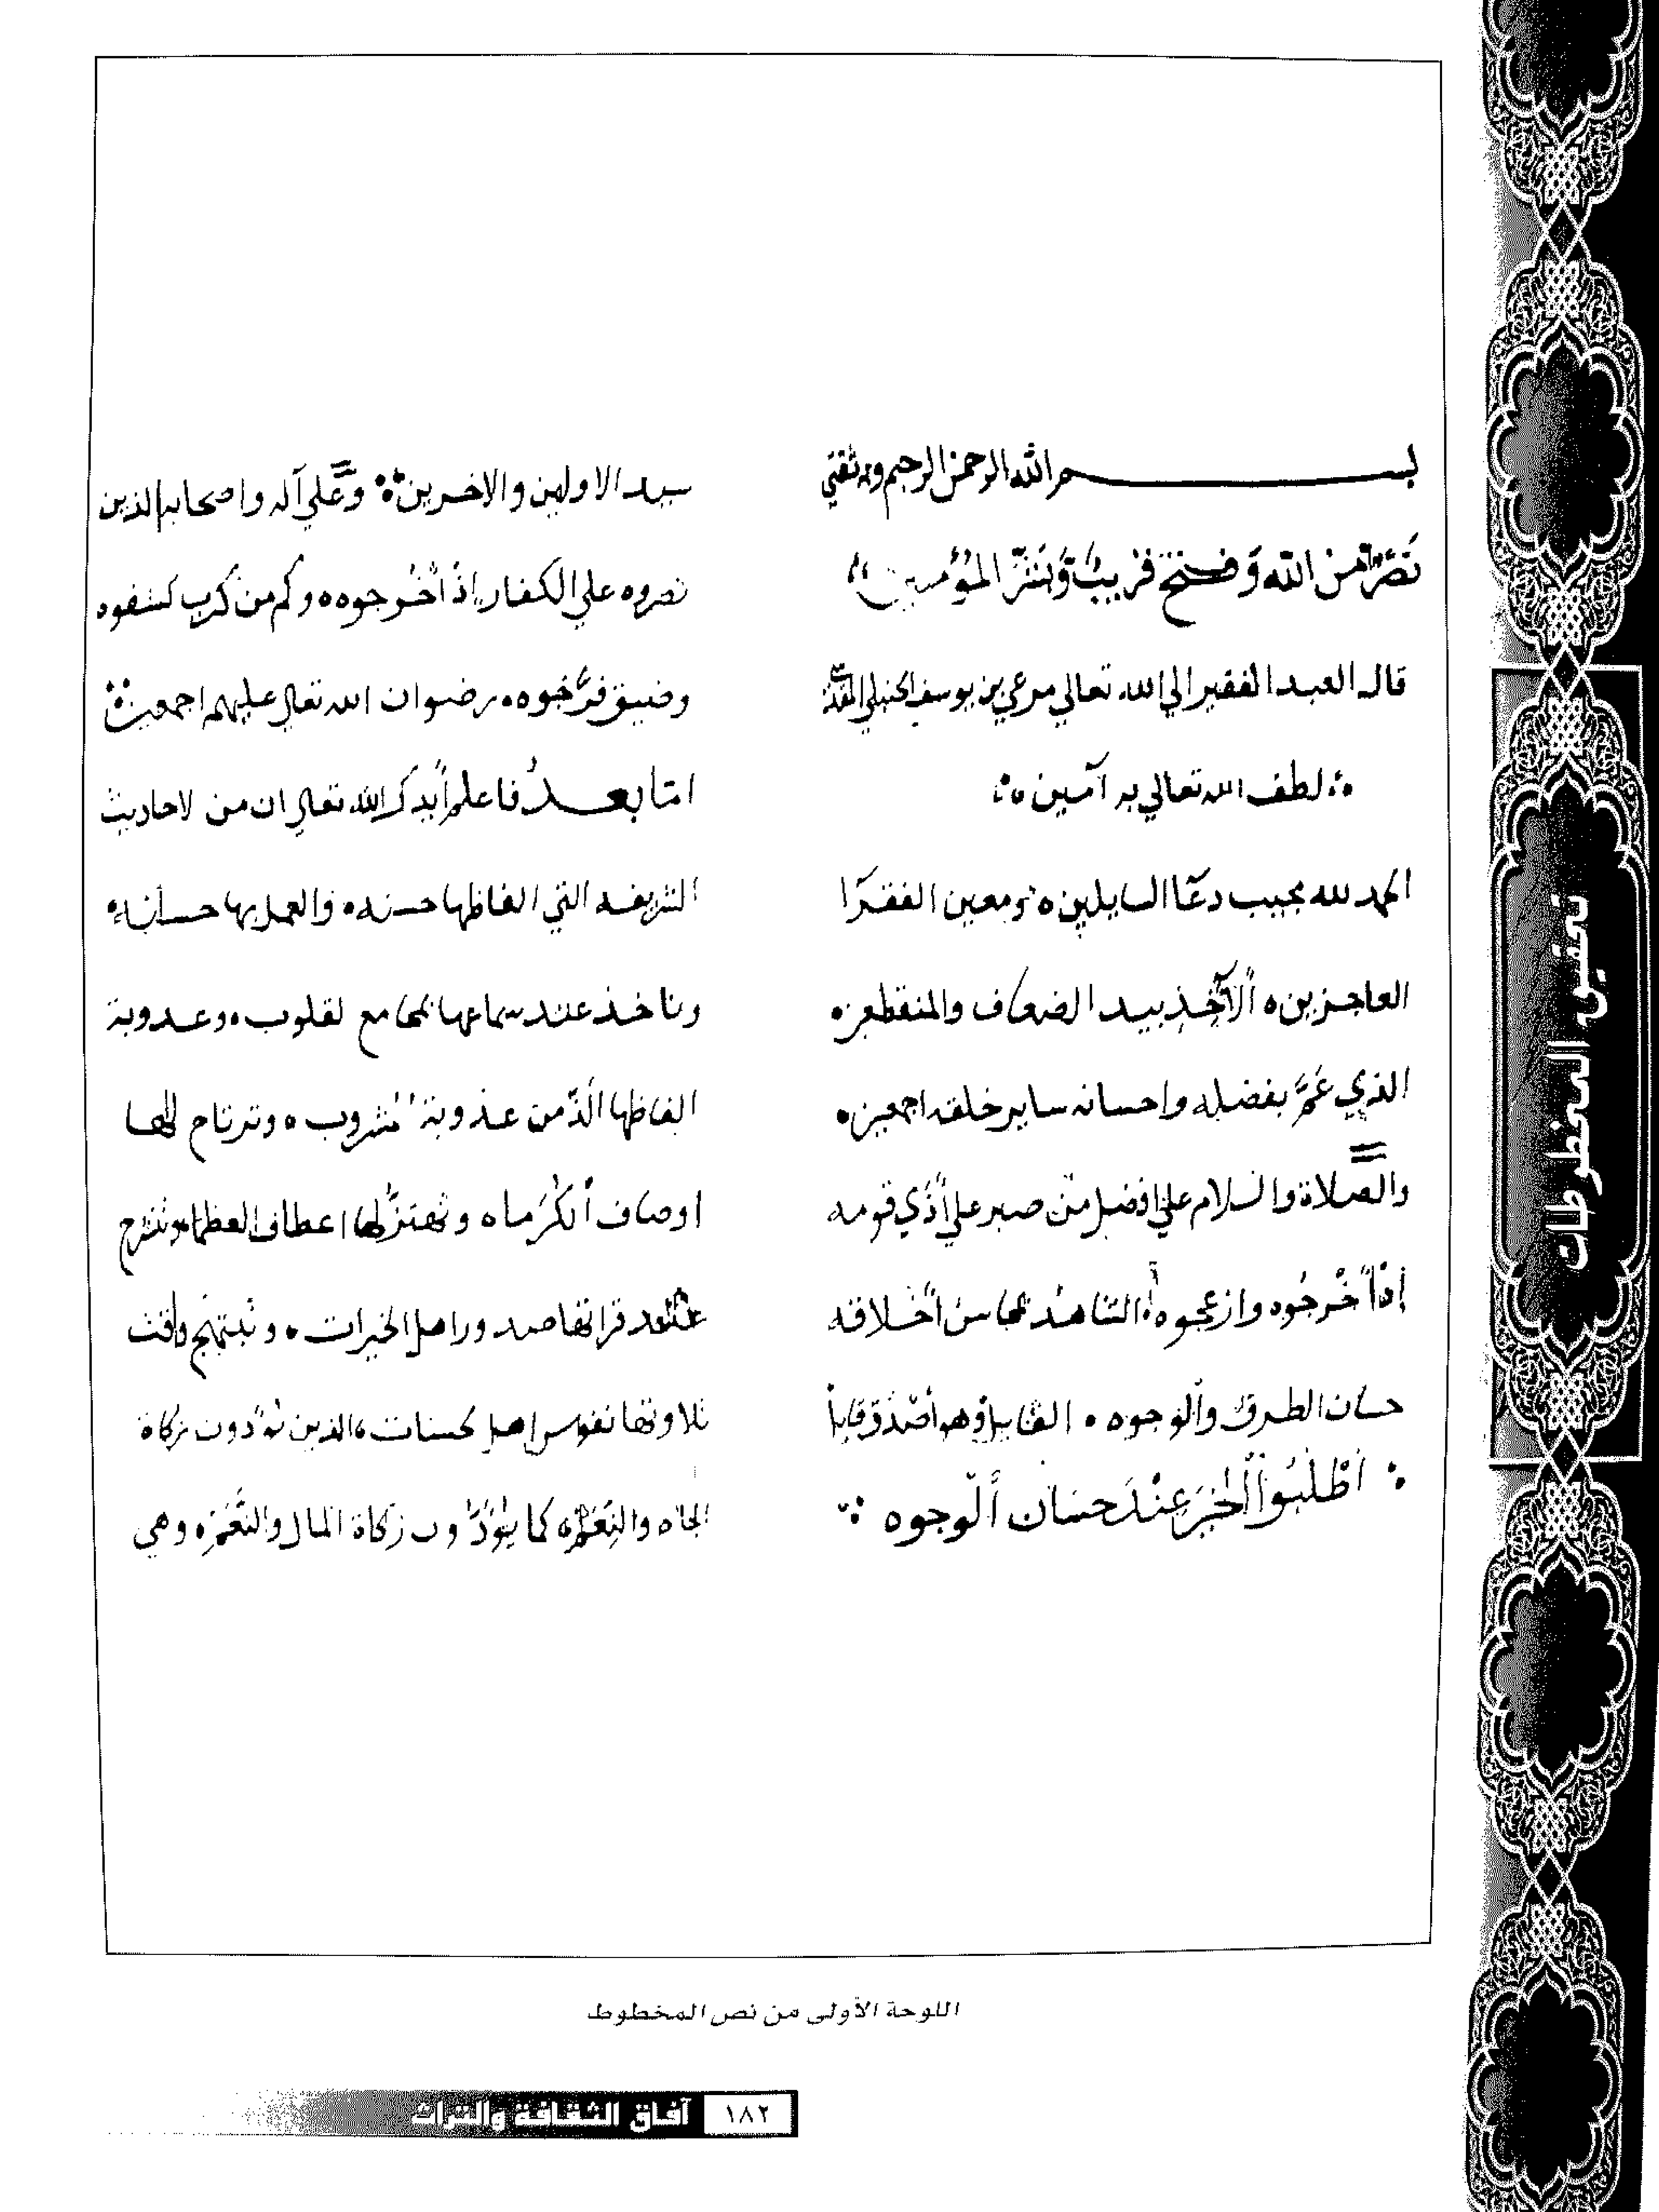 بسم الله الرحمن الرحيم وبه ثقتي
نَصْرٌ من الله وَفتح قريبٌ وَبَشِّر المُؤمنين
قال العبد الفقير الي الله تعالي مرعي بن يوسف الحنبلي المقدسي
لطف الله تعالي به آمين
الحمد لله مجيب دعآ السايلين ومعين الفقرآ
العاجزين الآخذ بيد الضعاف والمنقطعين
الذي عَمَّ بفضله واحسانه ساير خلقه اجمعين
والصلاة والسلام علي افضل من صبر علي أذي قومه
إذ أخْرجُوه وازعجوه الشاهد محاسن أخلاقه
حسان الطرق والوجوه القايل وهو أصْدق قايل
اطْلبُوا الخيرَ عِنْدَ حسَان الوجوه
سيد الاولين والاخرين وعلي آله واصحابه الذين
نصروه علي الكفار إذ أخرجوه وكم من كرب كشفوه
وضيق فرَّجوه رضوان الله تعالي عليهم اجمعين
امّا بعد فاعلم أيدك الله تعالي ان من لاحاديث
الشريفه التي الفاظها حسنه والعمل بها حسانه
وتاخذ عند سماعها بمجامع لقلوب وعدوبة
الفاظها الَذّ من عذوبة مشروب وترتاح لها
اوصاف الكُرَماه وتهتزُّ لها اعطاف العظماء وتنشرح
عند قراتها صدور اهل الخيرات وتبتهج وقت
تلاوتها نفوس اهل لحسنات الذين يؤدون زكاة
الجاه والنِّعَمْ كما يؤَدُّون زكاة المال والنَّعَمِ وهي
تحقيق المخطوطات
اللوحة الأولى من نص المخطوط
١٨٢ آفاق الثقافة والتراث